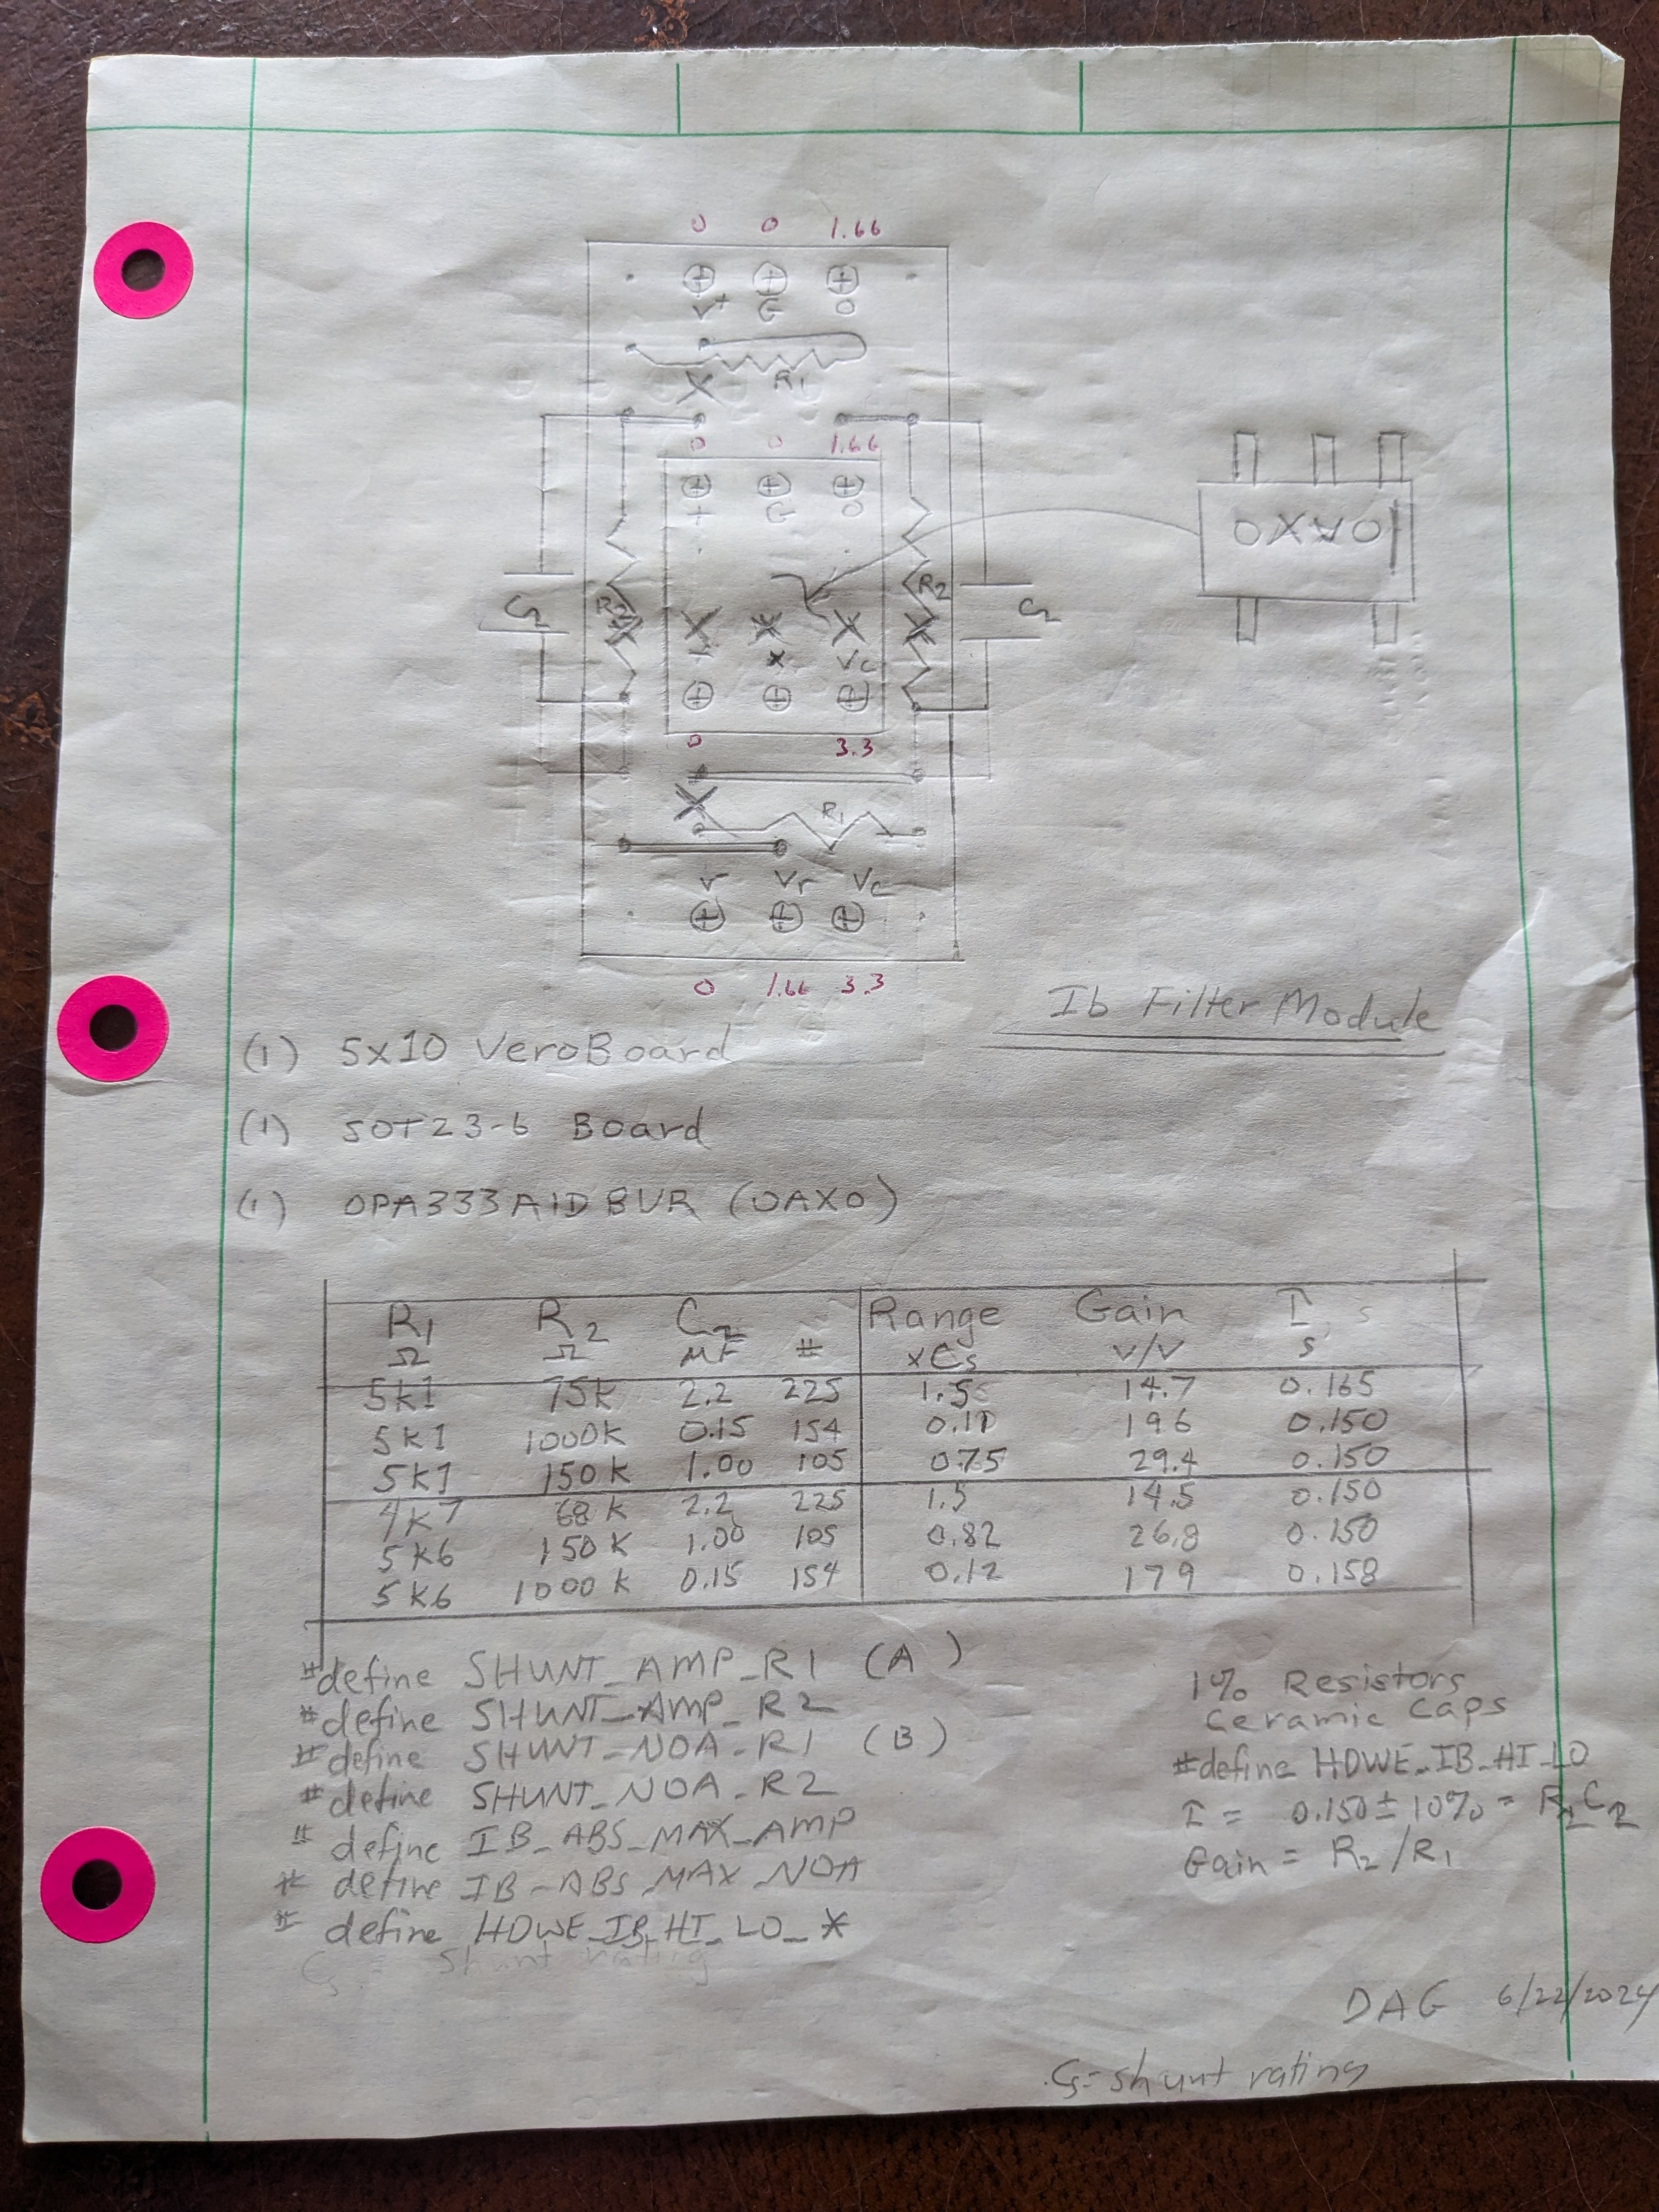 0 0 1.66
V+ G O
R1
X
0 0 1.66
+ G O
OAXO
R2 R2
C2 C2
X X X X X
- x Vc
0 3.3
X
R1
V- Vr Vc
0 1.66 3.3
Ib Filter Module
(1) 5x10 VeroBoard
(1) SOT23-6 Board
(1) OPA333AIDBVR (OAXO)
R1 R2 C2 Range Gain T, s
Ω Ω µF # xCs v/v s
5k1 75k 2.2 225 1.5 14.7 0.165
5k1 1000k 0.15 154 0.11 196 0.150
5k1 150k 1.00 105 0.75 29.4 0.150
4k7 68k 2.2 225 1.5 14.5 0.150
5k6 150k 1.00 105 0.82 26.8 0.150
5k6 1000k 0.15 154 0.12 179 0.158
#define SHUNT_AMP_R1 (A)
#define SHUNT_AMP_R2
#define SHUNT_NOA_R1 (B)
#define SHUNT_NOA_R2
#define IB_ABS_MAX_AMP
#define IB_ABS_MAX_NOA
#define HDWE_IB_HI_LO_*
Cs = Shunt rating
1% Resistors
Ceramic Caps
#define HDWE_IB_HI_LO
T = 0.150±10% = R2C2
Gain = R2/R1
DAG 6/22/2024
Cs=shunt rating